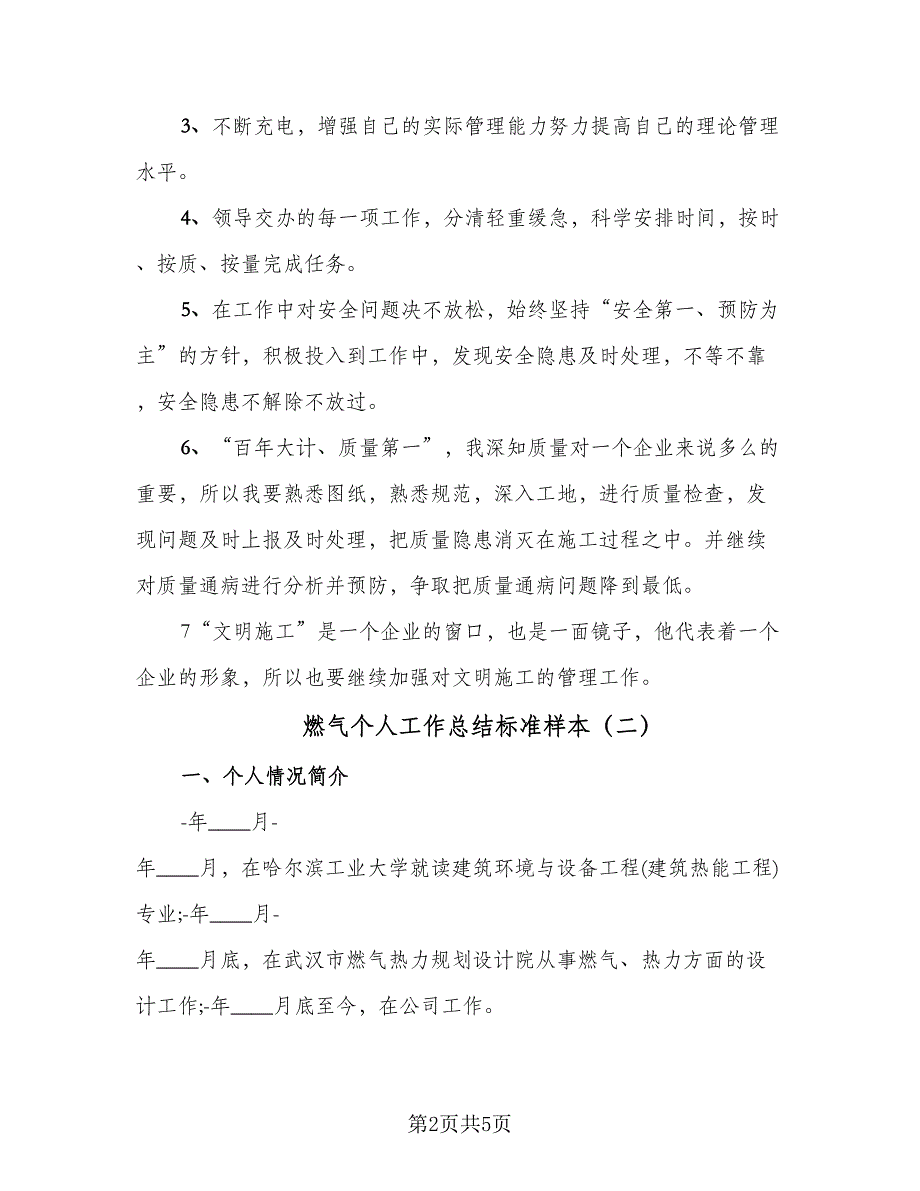 3、不断充电，增强自己的实际管理能力努力提高自己的理论管理
水平。
4、领导交办的每一项工作，分清轻重缓急，科学安排时间，按时
、按质、按量完成任务。
5、在工作中对安全问题决不放松，始终坚持“安全第一、预防为
主”的方针，积极投入到工作中，发现安全隐患及时处理，不等不靠
，安全隐患不解除不放过。
6、“百年大计、质量第一”，我深知质量对一个企业来说多么的
重要，所以我要熟悉图纸，熟悉规范，深入工地，进行质量检查，发
现问题及时上报及时处理，把质量隐患消灭在施工过程之中。并继续
对质量通病进行分析并预防，争取把质量通病问题降到最低。
7“文明施工”是一个企业的窗口，也是一面镜子，他代表着一个
企业的形象，所以也要继续加强对文明施工的管理工作。
燃气个人工作总结标准样本（二）
一、个人情况简介
-年____月-
年____月，在哈尔滨工业大学就读建筑环境与设备工程(建筑热能工程)
专业;-年____月-
年____月底，在武汉市燃气热力规划设计院从事燃气、热力方面的设
计工作;-年____月底至今，在公司工作。
第2页共5页